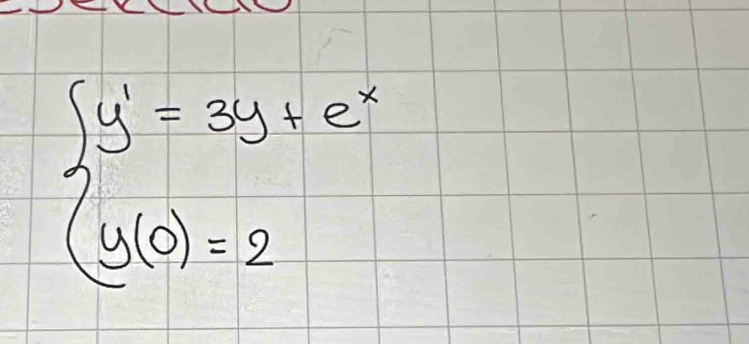 y' = 3y + e^x
y(0) = 2